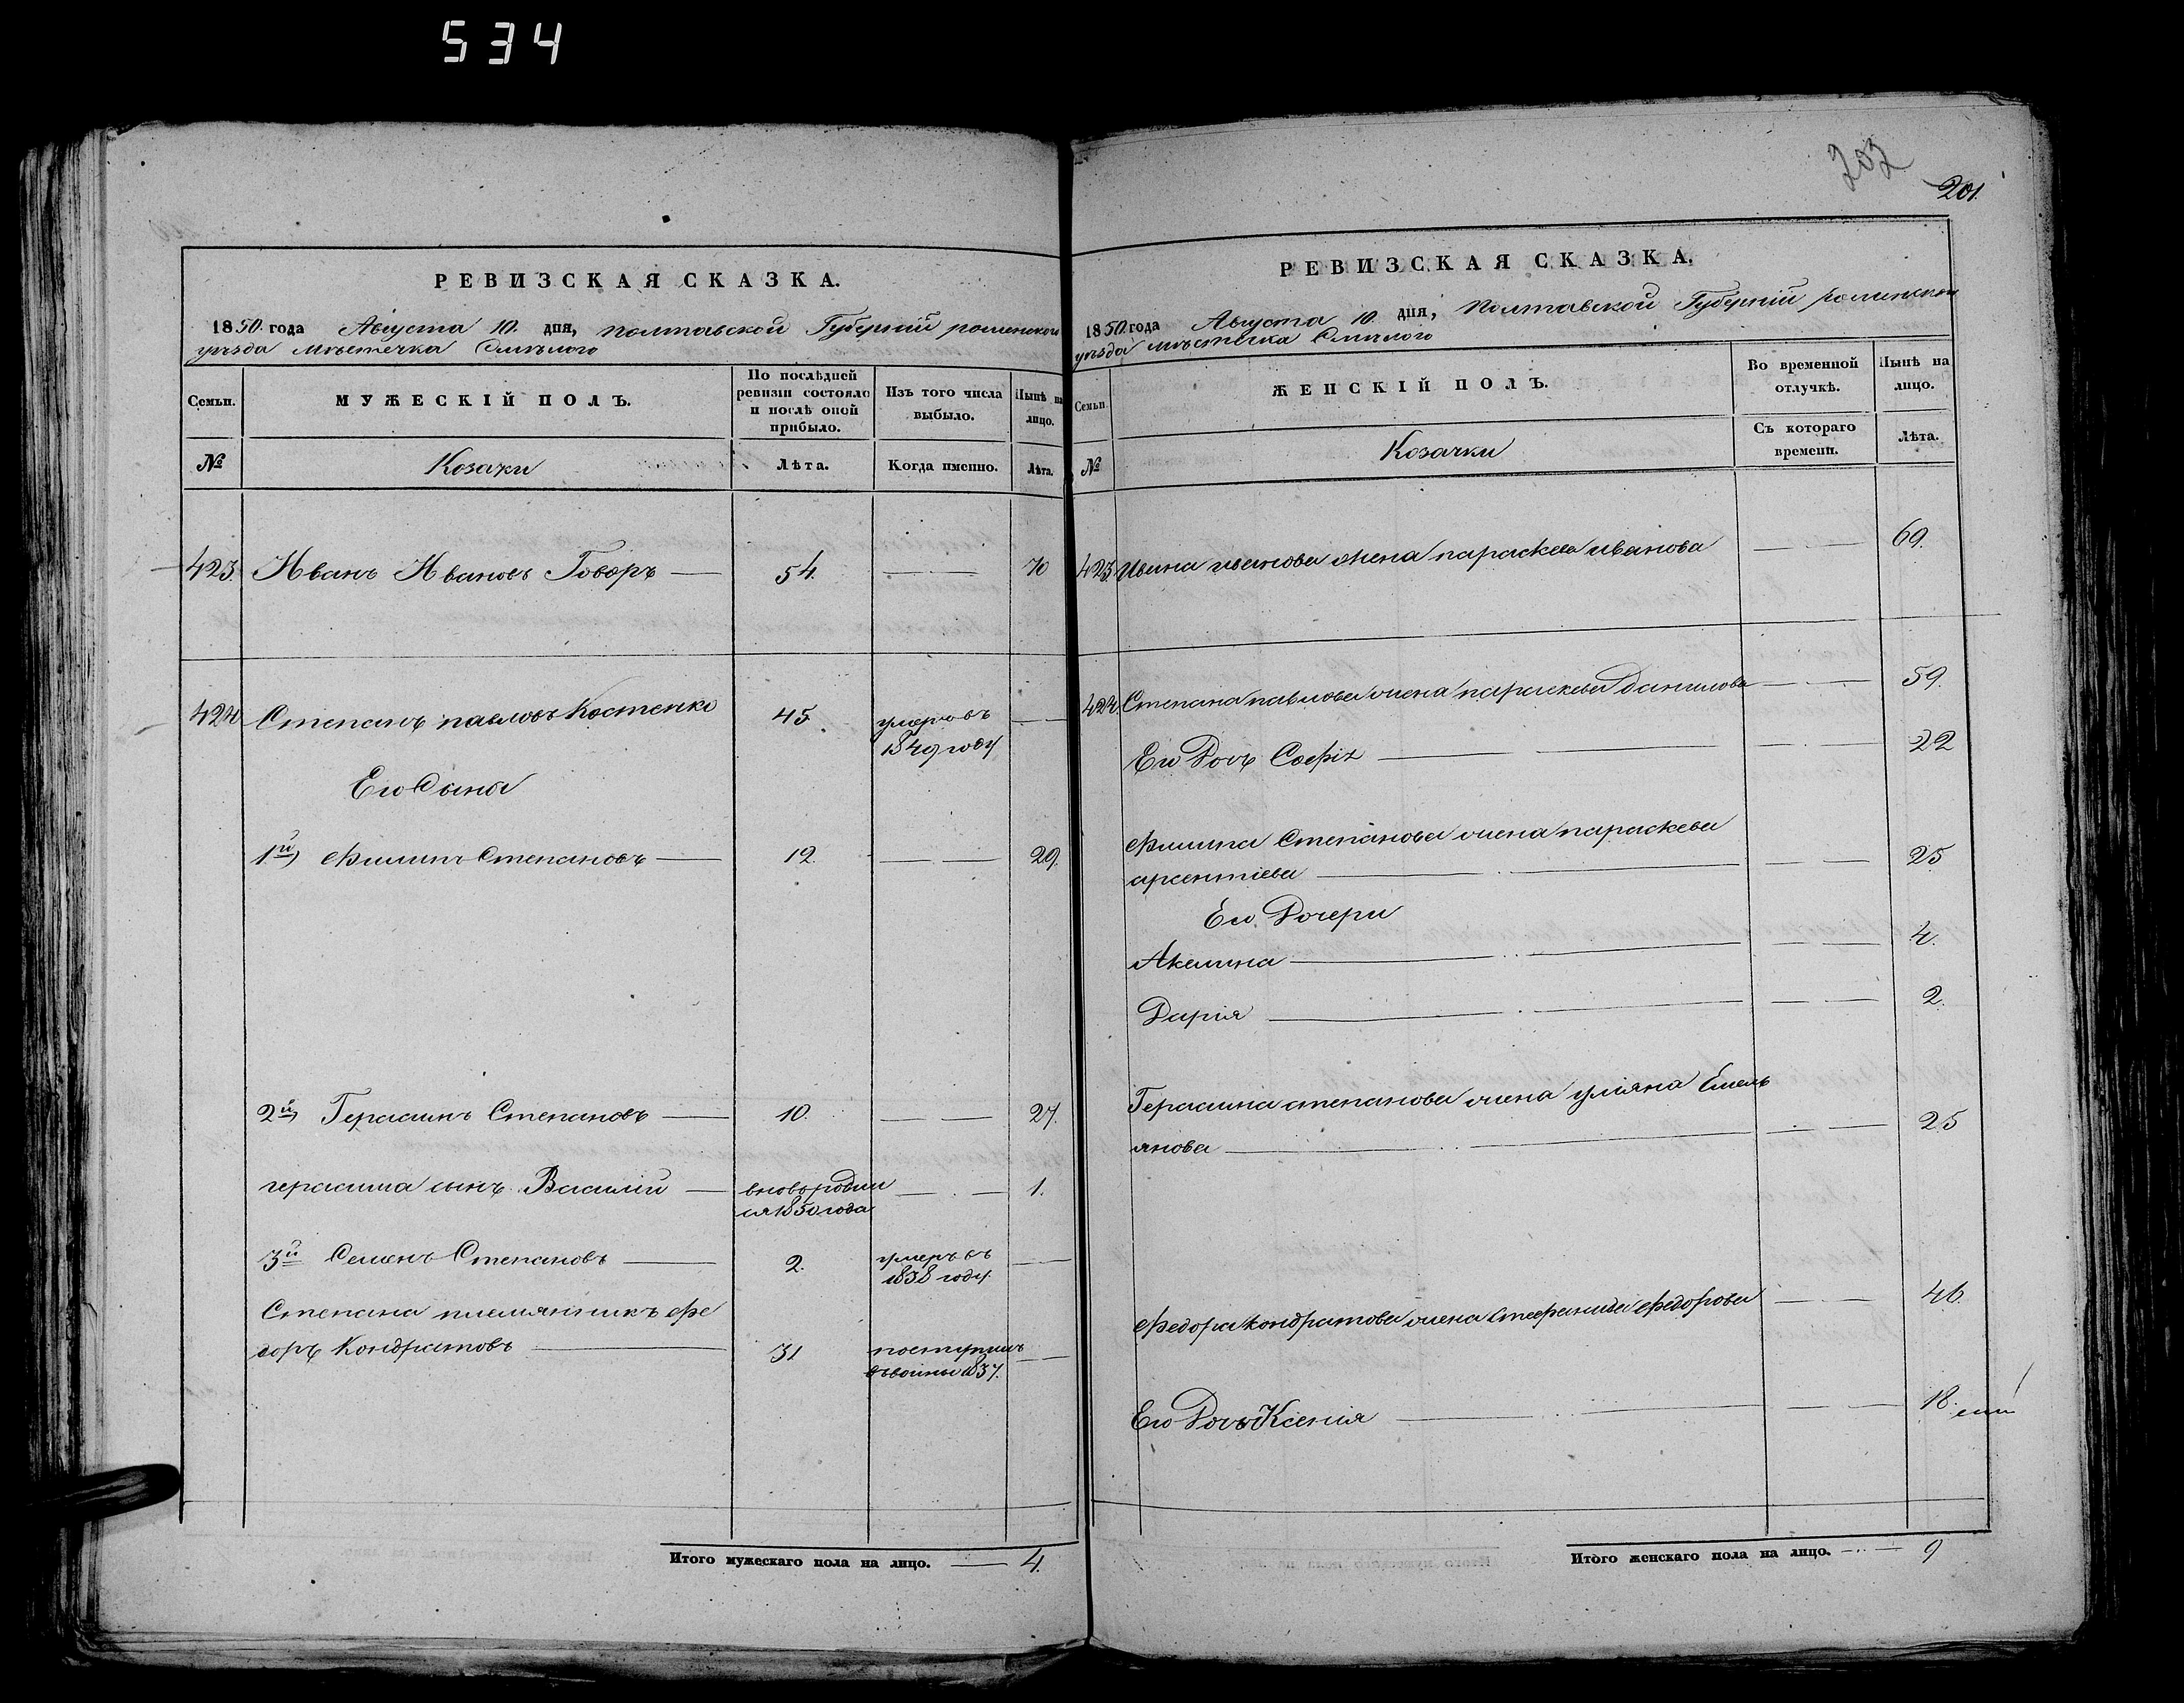 534
РЕВИЗСКАЯ СКАЗКА.
1850. года Августа 10. дня, полтавской Губерній роменского
уѣзда мѣстечка Смѣлого
Семьи.
МУЖЕСКІЙ ПОЛЪ.
По послѣдней
ревизіи состояло
и послѣ оной
прибыло.
Изъ того числа
выбыло.
Нынѣ на
лицо.
№
Козаки
Лѣта.
Когда именно.
Лѣта.
423. Иванъ Ивановъ Говоръ 54. 70
424 Степанъ павловъ Костенко 45. умеръ въ
1849 году
Его Сына
1й Филипъ Степановъ 12. 29.
2й Герасимъ Степановъ 10. 27.
герасима сынъ Василій вновородил 1.
ся 1850 года
3й Семенъ Степановъ 2. умеръ въ
1838 году.
Степана племянникъ фе
доръ Кондратовъ 31 поступилъ
1837.
Итого мужескаго пола на лицо. 4.
202
201.
РЕВИЗСКАЯ СКАЗКА.
1850. года Августа 10. дня, Полтавской Губерній роменского
уѣзда мѣстечка Смѣлого
Семьи
ЖЕНСКІЙ ПОЛЪ.
Во временной
отлучкѣ.
Нынѣ на
лицо.
№
Козачки
Съ котораго
времени.
Лѣта.
423. Ивана иванова жена параскева иванова 69.
424. Степана павлова жена параскева данилова 59.
Его Дочъ Софія 22
Филипа Степанова жена параскева
арсентіева 25
Его Дочери
Акелина 4.
Дарія 2.
Герасима степанова жена уліяна Емель
янова 25
Федора кондратова жена Стефанида федорова 46.
Его Дочъ Ксенія 18.
Итого женскаго пола на лицо. 9